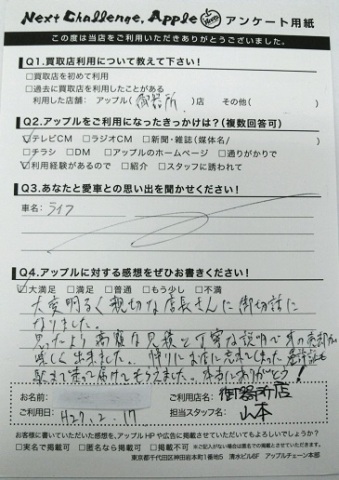 Next Challenge, Apple アンケート用紙
この度は当店をご利用いただきありがとうございました。
Q1.買取店利用について教えて下さい!
□買取店を初めて利用
□過去に買取店を利用したことがある
利用した店舗: アップル( 御器所 )店 その他( )
Q2.アップルをご利用になったきっかけは?(複数回答可)
☑テレビCM □ラジオCM □新聞・雑誌(媒体名/ )
□チラシ □DM □アップルのホームページ □通りがかりで
☑利用経験があるので □紹介 □スタッフに誘われて
Q3.あなたと愛車との思い出を聞かせください!
車名: ライフ
Q4.アップルに対する感想をぜひお書きください!
☑大満足 □満足 □普通 □もう少し □不満
大変明るく親切な店長さんに御世話に
なりました。
思ったより高額な見積と丁寧な説明で車の売却が
嬉しく出来ました。帰りにお店に忘れてしまった
駅まで走って届けてもらうました。本当にありがとう!
お名前:
ご利用店名: 御器所店
ご利用日: H27.2.17
担当スタッフ名: 山本
お客様に書いていただいた感想を、アップルHPや広告に掲載させていただいてもよろしいでしょうか?
□実名で掲載可 □匿名なら掲載可 □掲載不可 ※ご記入がない場合は匿名での掲載とさせていただきます。
東京都千代田区神田岩本町1番地5 清水ビル6F アップルチェーン本部